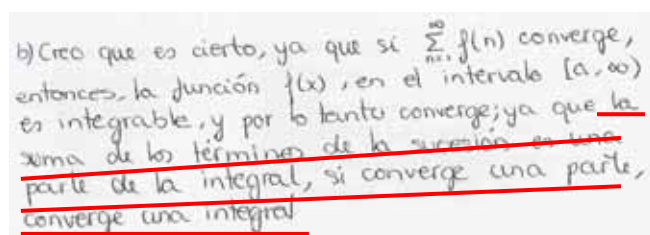 b) Creo que es cierto, ya que si ∞∑n=1 f(n) converge,
entonces, la función f(x), en el intervalo [a,∞)
es integrable, y por lo tanto converge; ya que la
suma de los términos de la sucesión es una
parte de la integral, si converge una parte,
converge una integral